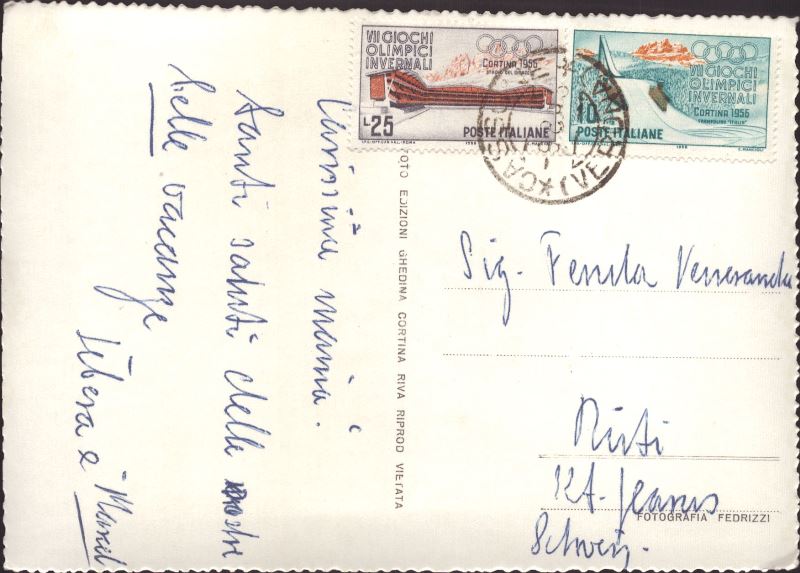 VII GIOCHI
OLIMPICI
INVERNALI
CORTINA 1956
STADIO DEL GHIACCIO
L. 25
POSTE ITALIANE
1956
VII GIOCHI
OLIMPICI
INVERNALI
CORTINA 1956
TRAMPOLINO "ITALIA"
10
POSTE ITALIANE
1956
Carissima mamma.
Santi saluti delle nostre
belle vacanze
Libera e
FOTO EDIZIONI GHEDINA CORTINA RIVA RIPROD VIETATA
Sig. Veneranda
Rüti
Kt.
Schweiz.
FOTOGRAFIA FEDRIZZI